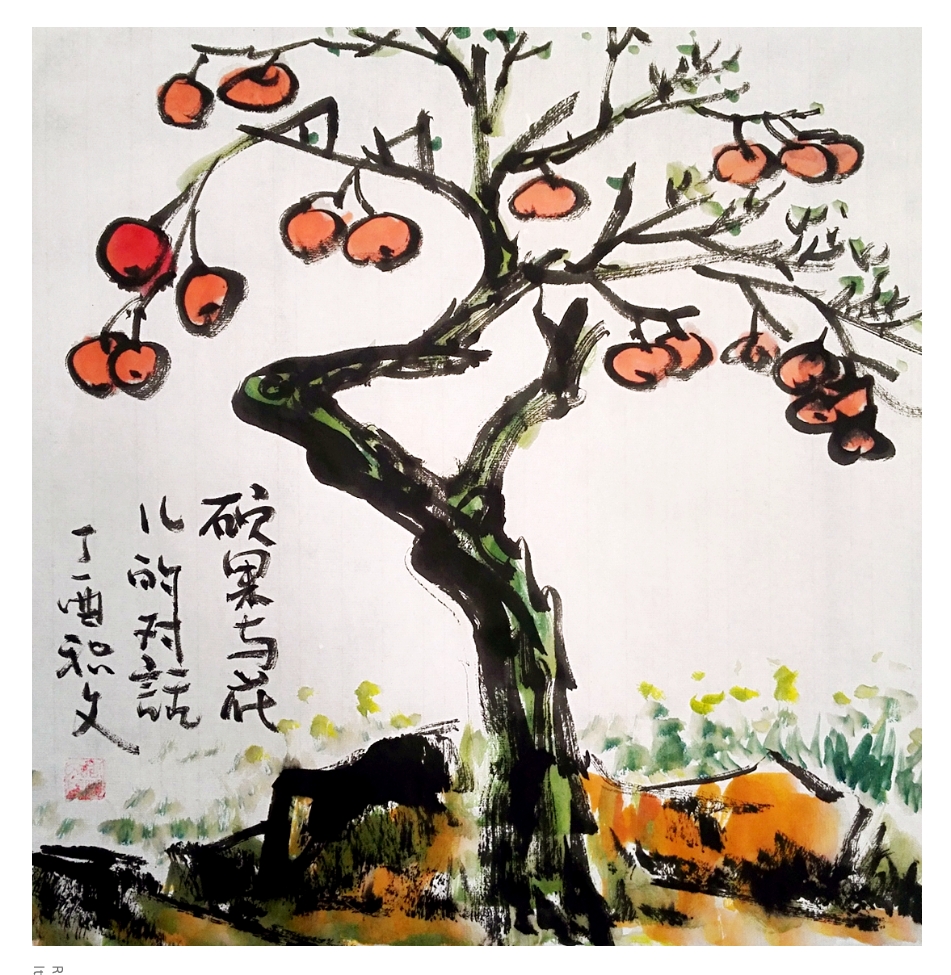 硕果与花
儿的对話
丁酉积文
R
It